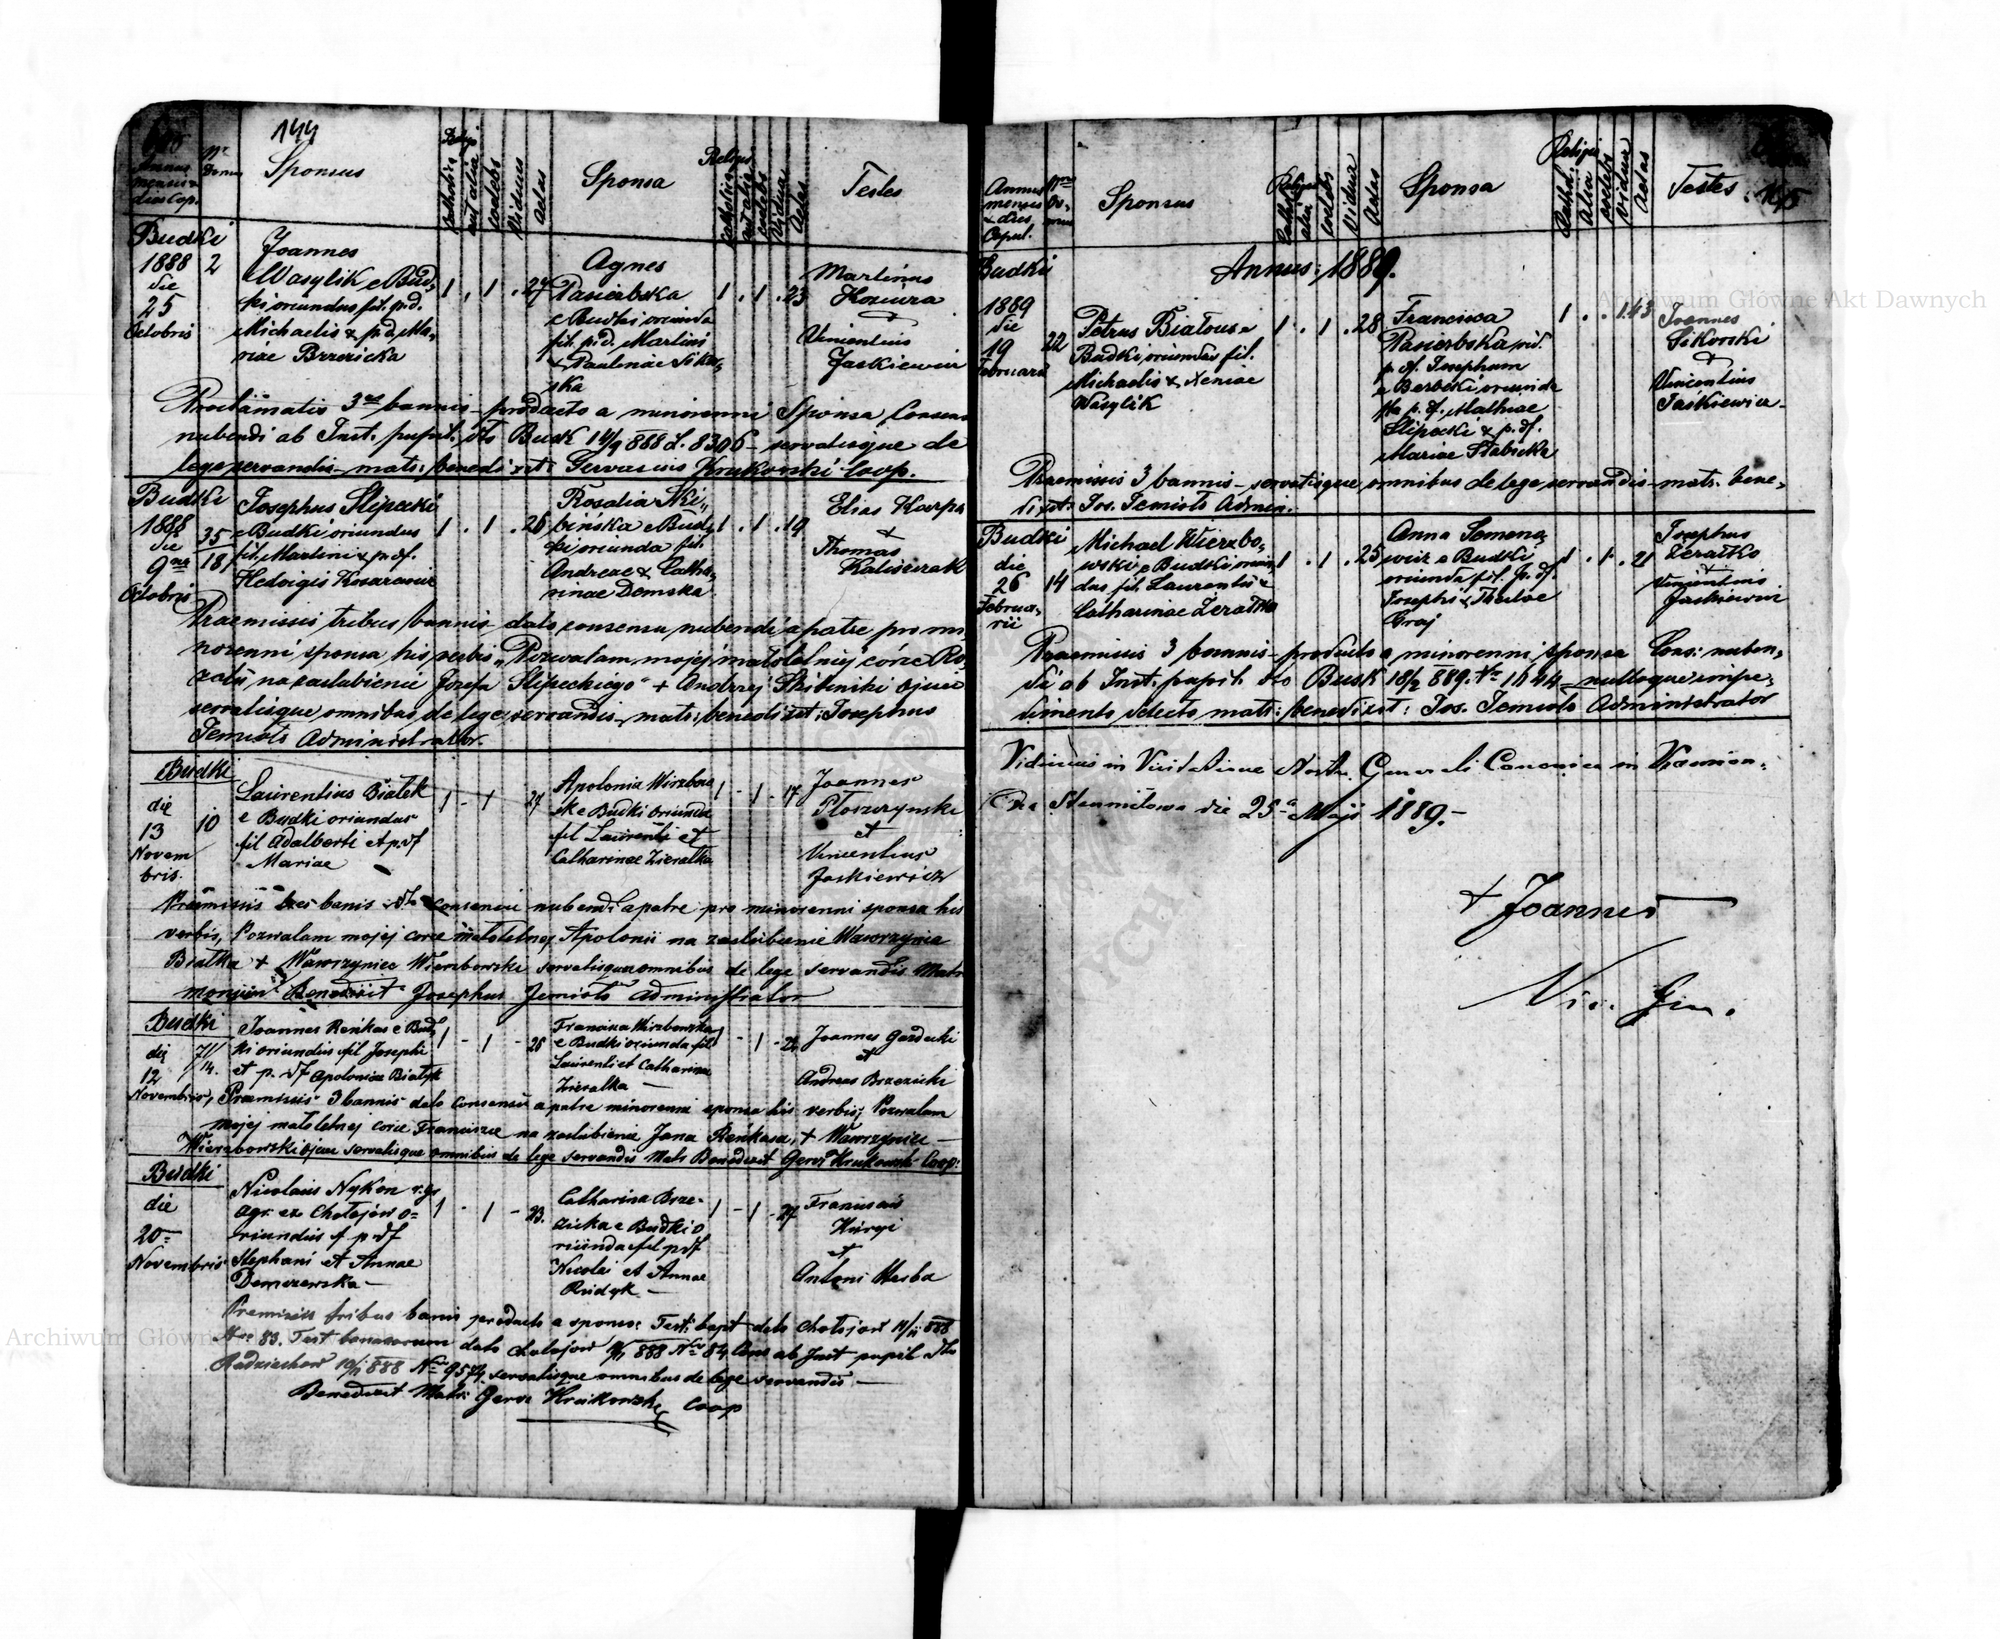 144
Annus mensis & dies Cop.
Nr Domus
Sponsus
Religio
Catholica
aut alia
coelebs
Viduus
aetas
Sponsa
Religio
Catholica
aut alia
coelebs
Vidua
Aetas
Testes
Budki
1888
die
25
Octobris
2
Joannes
Wasylik e Bud„
ki oriundus fil. p. d.
Michaelis & p. d. Ma„
riae Brzezicka
1 . 1 . 27
Agnes
Pasierbska
e Budki oriunda
fil. p. d. Martini
& Paulinae Sikor„
ska
1 . 1 . 23
Martinus
Koziura
&
Vincentius
Jaskiewicz
Proclamatis 3us bannis – producto a minorenni Sponsa Consens
nubendi ab Inst. pupil. dto Busk 14/9 888 L. 8306 – servatisque de
lege servandis – matr: benedixit: Gervasius Krukowski Coop.
Budki
1888
die
9na
Octobris
35
181
Josephus Slipecki
e Budki oriundus
fil. Martini & p. df.
Hedvigis Kosarewicz
1 . 1 . 26
Rosalia Ski„
bińska e Bud„
ki oriunda fil.
Andreae & Catha„
rinae Demska
1 . 1 . 19
Elias Karpa
&
Thomas
Kaliszczak
Praemissis tribus bannis – dato consensu nubendi a patre pro mi„
norenni sponsa his verbis „Pozwalam mojej małoletniej córce Ro„
zalii na zaslubienie Jozefa Slipeckiego" + Andrzej Skibinski ojciec
servatisque omnibus de lege servandis – matr: benedixit: Josephus
Jemioło Administrator.
Budki
die
13
Novem
bris.
10
Laurentius Białek
e Budki oriundus
fil Adalberti et p. df
Mariae
1 - 1 27
Apolonia Wirzbow
ska e Budki oriunda
fil Laurenti et
Catharinae Zieralka
1 - 1 - 17
Joannes
Płoszczynski
et
Vincentius
Jaskiewicz
Premissis tres banis dto consensu nubendi a patre pro minorenni sponsa his
verbis, Pozwalam mojej corce małoletnej Apolonii na zaslubienie Wawrzynca
Białka + Wawrzyniec Wierzbowski servatisque omnibus de lege servandis Matri
monium Benedixit Josephus Jemioło administrator
Budki
die
12
Novembris,
71/14.
Joannes Reńkas e Bud„
ki oriundus fil Josephi
et p. df Apoloniae Białyk
1 - 1 - 26
Francisca Wirzbowska
e Budki oriunda fil
Laurenti et Catharinae
Zieralka —
1 - 1 - 22
Joannes Gardecki
et
Andreas Brzezicki
Praemissis 3 bannis dato consensu a patre minorenni sponsa his verbis; Pozwalam
mojej małoletnej corce Francisce na zaslubienie Jana Reńkasa, + Wawrzyniec —
Wierzbowski ojciec servatisque omnibus de lege servandis Matr Benedixit Gerv Krukowski Coop:
Budki
die
20=
Novembris
Nicolaus Nykon r. gr
agr. ex Chołojów o=
riundus f. p. df
Stephani et Annae
Demczewska —
1 - 1 - 23.
Catharina Brze-
zicka e Budki o
riunda fil p df
Nicolai et Annae
Rudyk —
1 - 1 - 27
Franciscus
Kurzi
et
Antoni Herba
Premissis tribus banis producto a sponso: Testi: bapt dato Chołojów 11/11 888
Nro 83. Test bannorum dato Chołojów 9/11 888 Nro 84 Cons ab Inst pupil dto
Radziechów 10/11 888 Nro 9574. servatisque omnibus de lege servandis —
Benedixit Matri Gerv. Krukowski Coop
Annus
mensis
& dies
Copul.
Nrus
Do-
mus
Sponsus
Religio
Catholica
alia
coelebs
Vidua
Aetas
Sponsa
Religio
Cathol.
Alia
coelebs
Vidua
Aetas
Testes: 145
Budki
Annus: 1889.
1889
die
19
Februarii
22
Petrus Białous e
Budki oriundus fil.
Michaelis & Xeniae
Wasylik
1 . 1 . 28
Francisca
Pasierbska vid.
p. df. Josephum
e Berbeki oriunda
fla p. df. Mathiae
Slipecki & p. df.
Mariae Słabicka
1 . . 1.43
Joannes
Sikorski
&
Vincentius
Jaśkiewicz –
Praemissis 3 bannis – servatisque omnibus de lege servandis – matr. bene„
dixit: Jos. Jemioło Admin:
Budki
die
26
Februa„
rii
14
Michael Wierzbo„
wski e Budki oriun„
dus fil. Laurentii &
Catharinae Zerałka
1 . 1 . 25
Anna Semeno
wicz e Budki
oriunda fil. p. df.
Josephi & Theclae
Graj
1 . 1 . 21
Josephus
Zerałko
&
Vincentius
Jaskiewicz
Praemissis 3 bannis – producto a minorenni sponsa Cons: nuben„
di ab Inst. pupil. dto Busk 18/2 889. Nro 1644 – nulloque impe„
dimento detecto matr: benedixit: Jos. Jemioło Administrator
Vidimus in Visitatione Nostra Generali Canonica in Kamion„
ka Strumiłowa die 25a Maji 1889. –
+ Joannes
Vic. Gen.
Archiwum Główne Akt Dawnych
Archiwum Główne